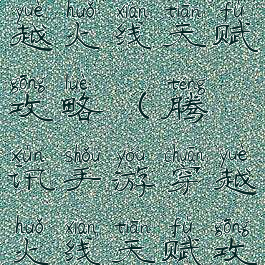 yuè huǒ xiàn tiān fù
越火线天赋
gōng lüè téng
攻略(腾
xùn shǒu yóu chuān yuè
讯手游穿越
huǒ xiàn tiān fù gōng
火线天赋攻